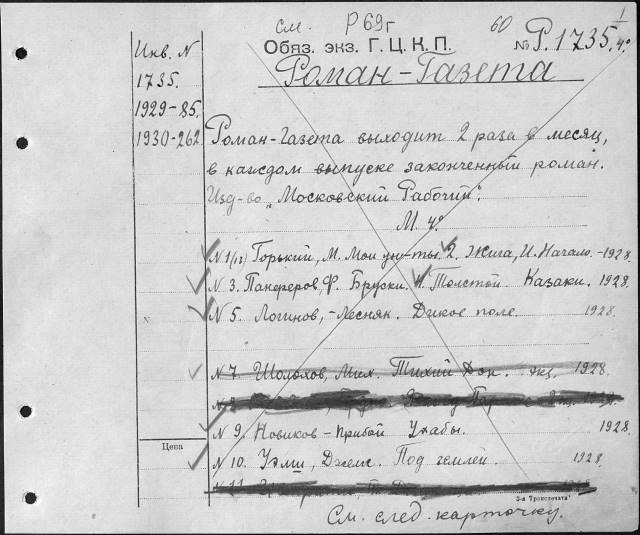 см. Р69г
60 № Р.1735. 1/4°
Обяз. экз. Г. Ц. К. П.
Роман-Газета
Инв. N
1735.
1929-85.
1930-262
Роман-Газета выходит 2 раза в месяц,
в каждом выпуске законченный роман.
Изд-во „Московский Рабочий".
М. 4°
N 1(13) Горький, М. Мои ун-ты. 2. Жига, И. Начало. - 1928.
N 3. Панферов, Ф. Бруски. 4. Толстой Казаки. 1928.
N 5. Логинов, -Лесняк. Дикое поле. 1928.
N 7. Шолохов, Мих. Тихий Дон. экз. 1928.
N 9. Новиков-Прибой Ухабы. 1928.
Цена
N 10. Уэлш, Джемс. Под землей 1928.
3-я Транспечать
См. след. карточку.